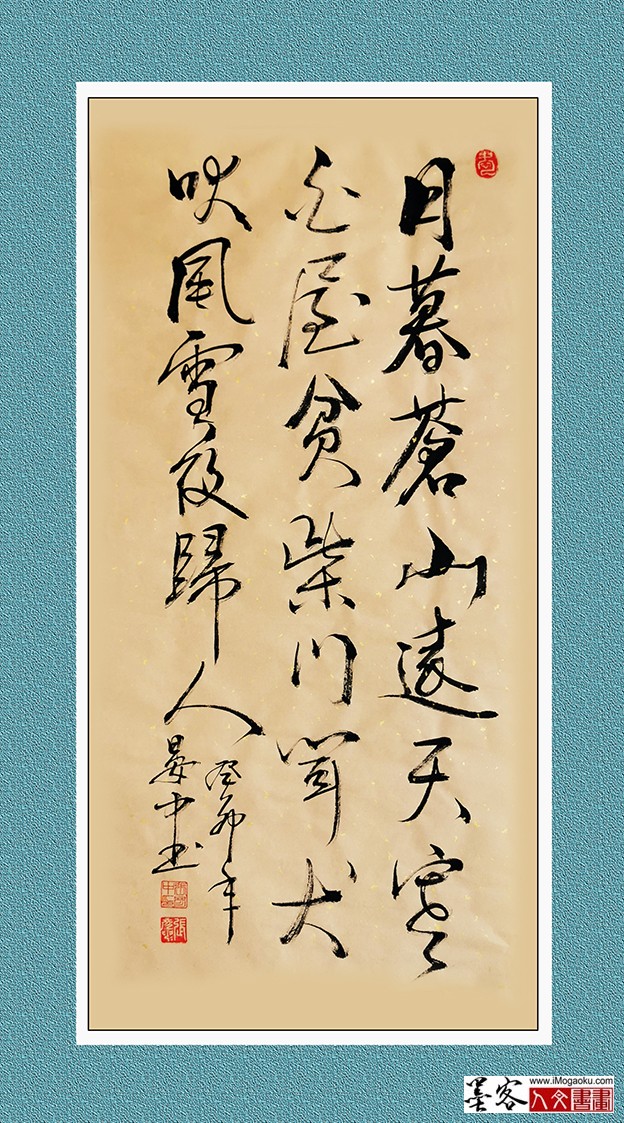 日暮蒼山遠天寒
白屋貧柴門聞犬
吠風雪夜歸人
癸卯年
晏中书
墨客
www.iMogaoku.com
人文書畫